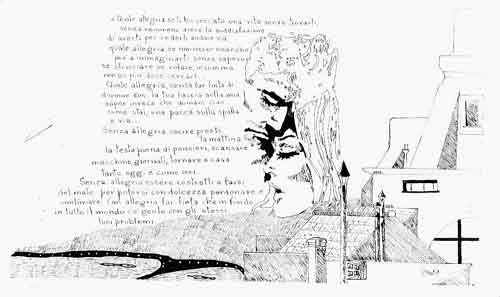 Quale allegria se ti ho cercato una vita senza trovarti,
senza nemmeno avere la soddisfazione
di averti per vederti andare via
quale allegria se non riesco neanche
più a immaginarti senza sapere
se strisciare se volare, insomma
non so più dove cercarti.
Quale allegria, senza far finta di
dormire con la tua faccia sulla mia
sapere invece che domani ciao
come stai, una pacca sulla spalla
e via..
Senza allegria uscire presto
la mattina
la testa piena di pensieri, scansare
macchine, giornali, tornare a casa
tanto oggi è come ieri.
Senza allegria essere costretti a farsi
del male per potersi con dolcezza perdonare e
continuare. Con allegria far finta che in fondo
in tutto il mondo c'è gente con gli stessi
tuoi problemi.